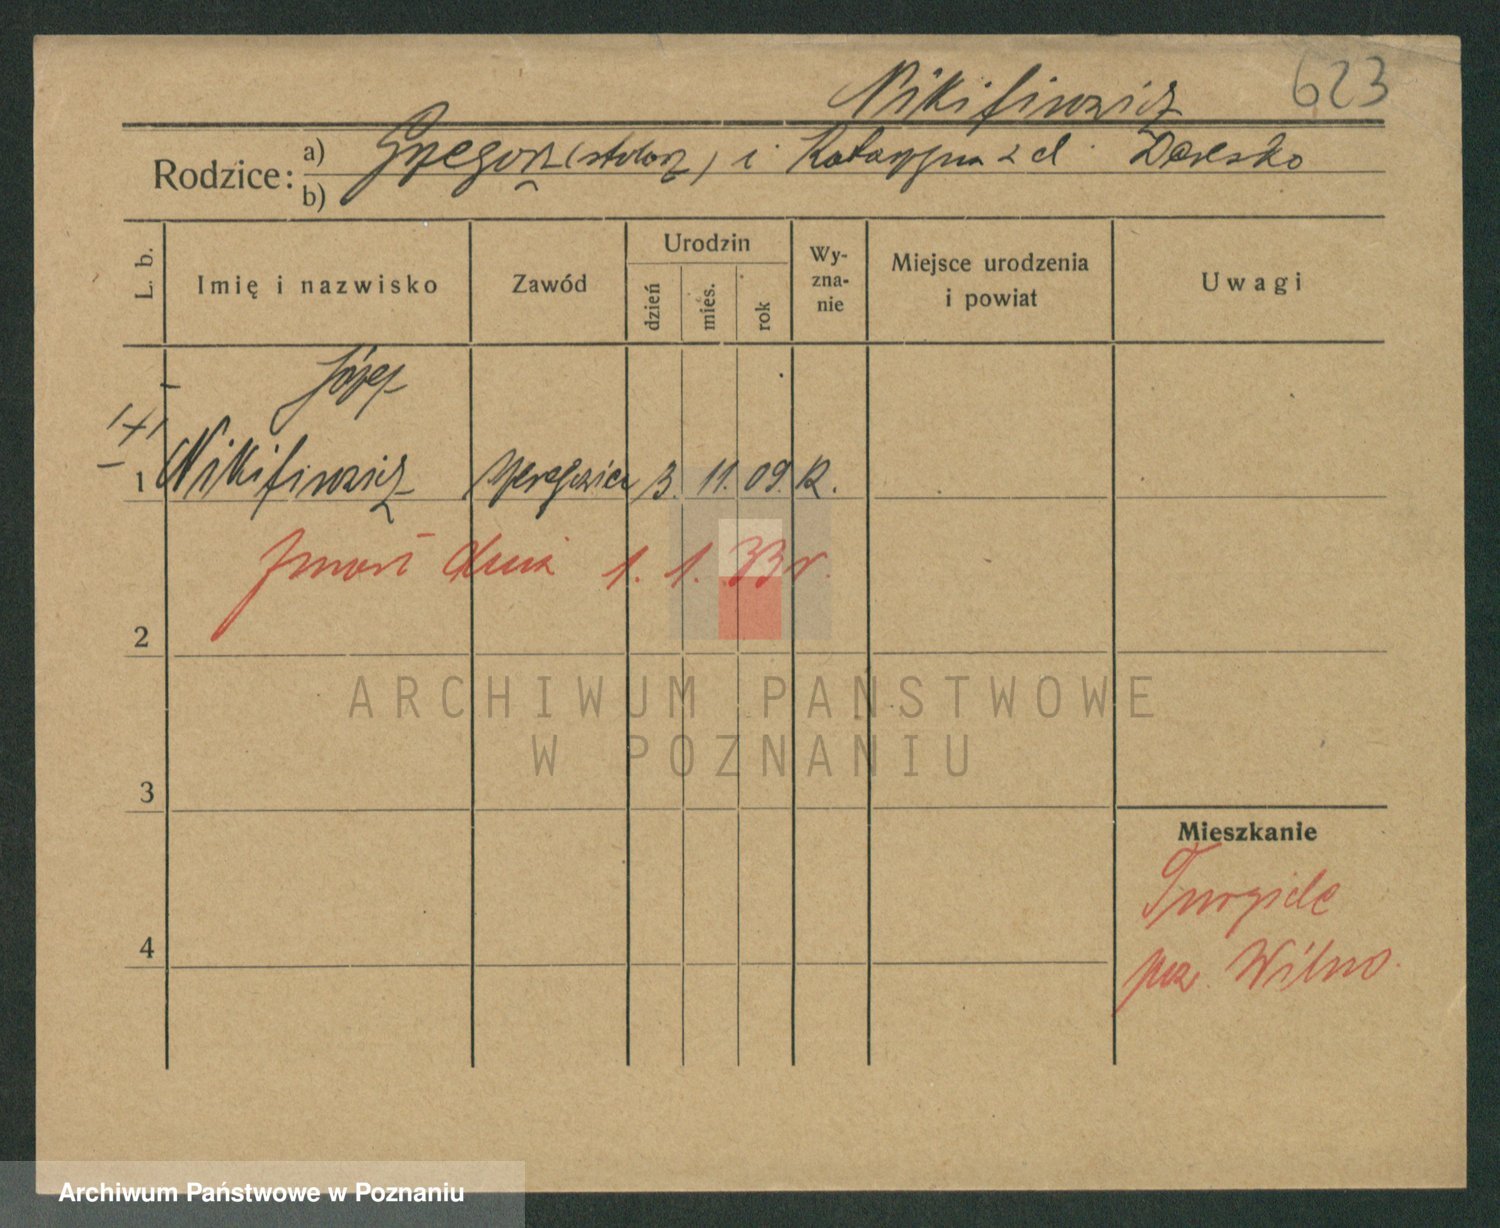 623
Nikifirowicz
Rodzice: a) Gregorz (stolarz) i Katarzyna z d. Deresko
b)
L. b.
Imię i nazwisko
Zawód
Urodzin
dzień
mies.
rok
Wy-
zna-
nie
Miejsce urodzenia
i powiat
Uwagi
Józef
1 Nikifirowicz 3. 11. 09. R.
Zmarł dnia 1. 1. 33 r.
2
3
4
Mieszkanie
Turgiele
pow. Wilno.
ARCHIWUM PAŃSTWOWE
W POZNANIU
Archiwum Państwowe w Poznaniu